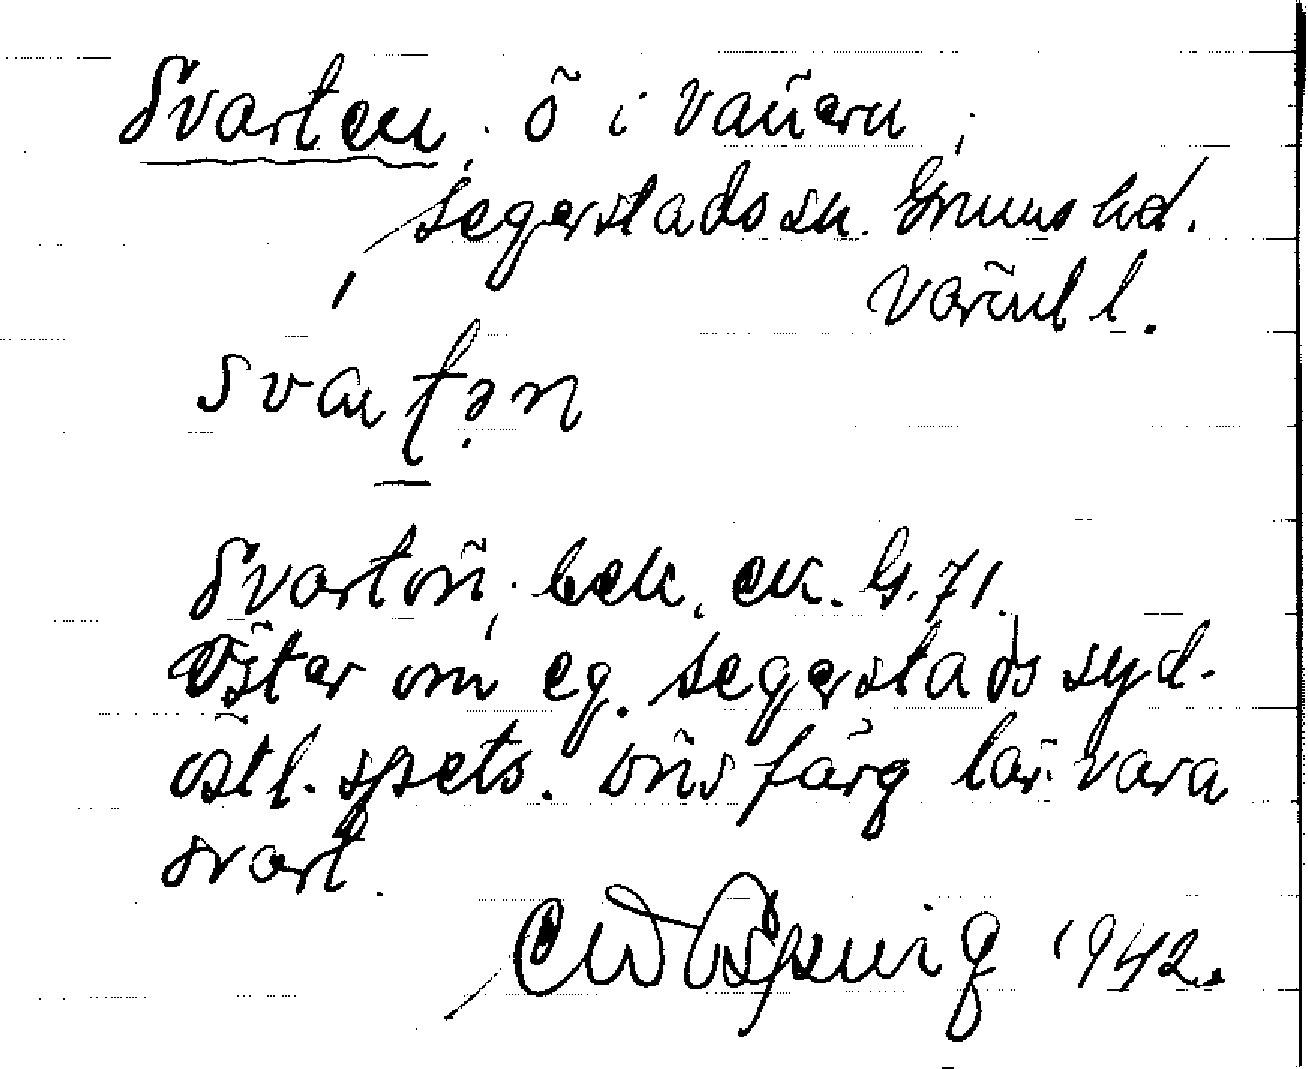 Svarten, ö i Vänern,
Segerstads sn. Grums hd.
Värml l.
svaṭən
Svartön, bek. ek. bl. 71.
Öster om eg. Segerstads syd-
östl. spets. öns färg lär vara
svart.
1942.